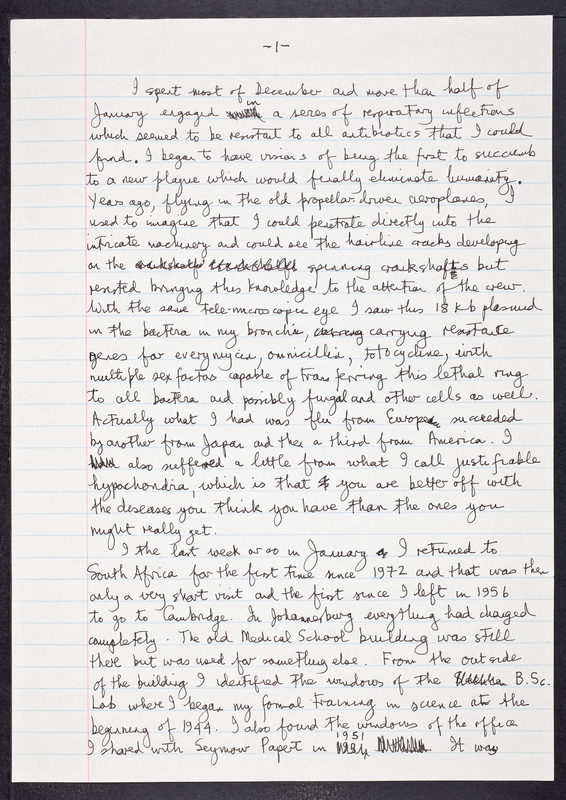 -1-
I spent most of December and more than half of
January engaged in a series of respiratory infections
which seemed to be resistant to all antibiotics that I could
find. I began to have visions of being the first to succumb
to a new plague which would finally eliminate humanity.
Years ago, flying in the old propellar driven aeroplanes, I
used to imagine that I could penetrate directly into the
intricate machinery and could see the hairline cracks developing
on the spinning crankshafts but
resisted bringing this knowledge to the attention of the crew.
With the same tele-microscopic eye I saw this 18 kb plasmid
in the bacteria in my bronchi, carrying resistance
genes for everymycin, omnicillin, totocycline, with
multiple sex factors capable of transferring this lethal ring
to all bacteria and possibly fungal and other cells as well.
Actually what I had was flu from Europe, succeeded
by another from Japan and then a third from America. I
also suffered a little from what I call justifiable
hypochondria, which is that you are better off with
the diseases you think you have than the ones you
might really get.
I the last week or so in January I returned to
South Africa for the first time since 1972 and that was then
only a very short visit and the first since I left in 1956
to go to Cambridge. In Johannesburg everything had changed
completely. The old Medical School building was still
there but was used for something else. From the outside
of the building I identified the windows of the B.Sc.
Lab where I began my formal training in science at the
beginning of 1944. I also found the windows of the office
I shared with Seymour Papert in 1951 It was